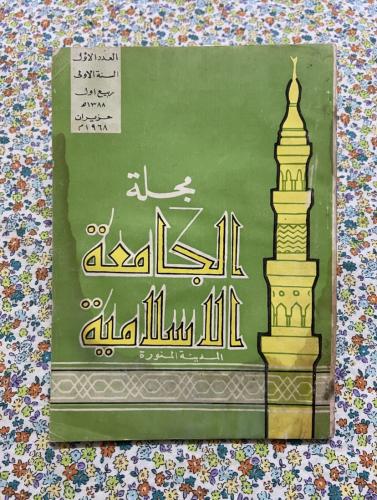 العدد الاول
السنة الاولى
ربيع اول
١٣٨٨ه
حزيران
١٩٦٨م
مجلة
الجامعة
الاسلامية
المدينة المنورة